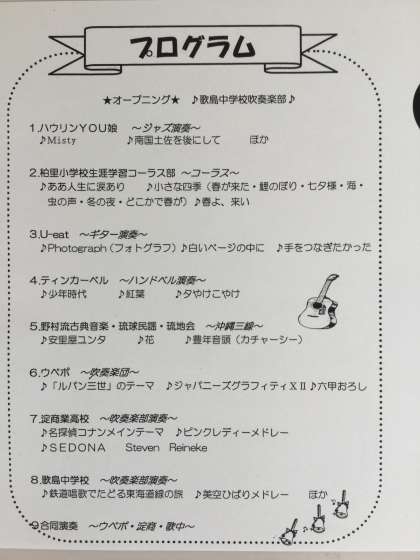 プログラム
★オープニング★ ♪歌島中学校吹奏楽部♪
1.ハウリンYOU娘 ～ジャズ演奏～
♪Misty ♪南国土佐を後にして ほか
2.柏里小学校生涯学習コーラス部 ～コーラス～
♪ああ人生に涙あり ♪小さな四季（春が来た・鯉のぼり・七夕様・海・
虫の声・冬の夜・どこかで春が）♪春よ、来い
3.U-eat ～ギター演奏～
♪Photograph（フォトグラフ）♪白いページの中に ♪手をつなぎたかった
4.ティンカーベル ～ハンドベル演奏～
♪少年時代 ♪紅葉 ♪夕やけこやけ
5.野村流古典音楽・琉球民謡・琉地会 ～沖縄三線～
♪安里屋ユンタ ♪花 ♪豊年音頭（カチャーシー）
6.ウペポ ～吹奏楽団～
♪「ルパン三世」のテーマ ♪ジャパニーズグラフィティⅩⅡ ♪六甲おろし
7.淀商業高校 ～吹奏楽部演奏～
♪名探偵コナンメインテーマ ♪ピンクレディーメドレー
♪SEDONA Steven Reineke
8.歌島中学校 ～吹奏楽部演奏～
♪鉄道唱歌でたどる東海道線の旅 ♪美空ひばりメドレー ほか
9.合同演奏 ～ウペポ・淀商・歌中～